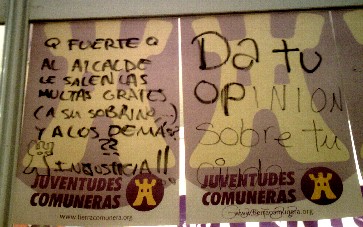 Q FUERTE Q
AL ALCALDE
LE SALEN LAS
MULTAS GRATIS
(A SU SOBRINO...)
Y A LOS DEMAS?
??
INJUSTICIA!!
JUVENTUDES
COMUNERAS
www.tierracomunera.org
Da tu
OPINION
sobre tu
JUVENTUDES
COMUNERAS
www.tierracomunera.org